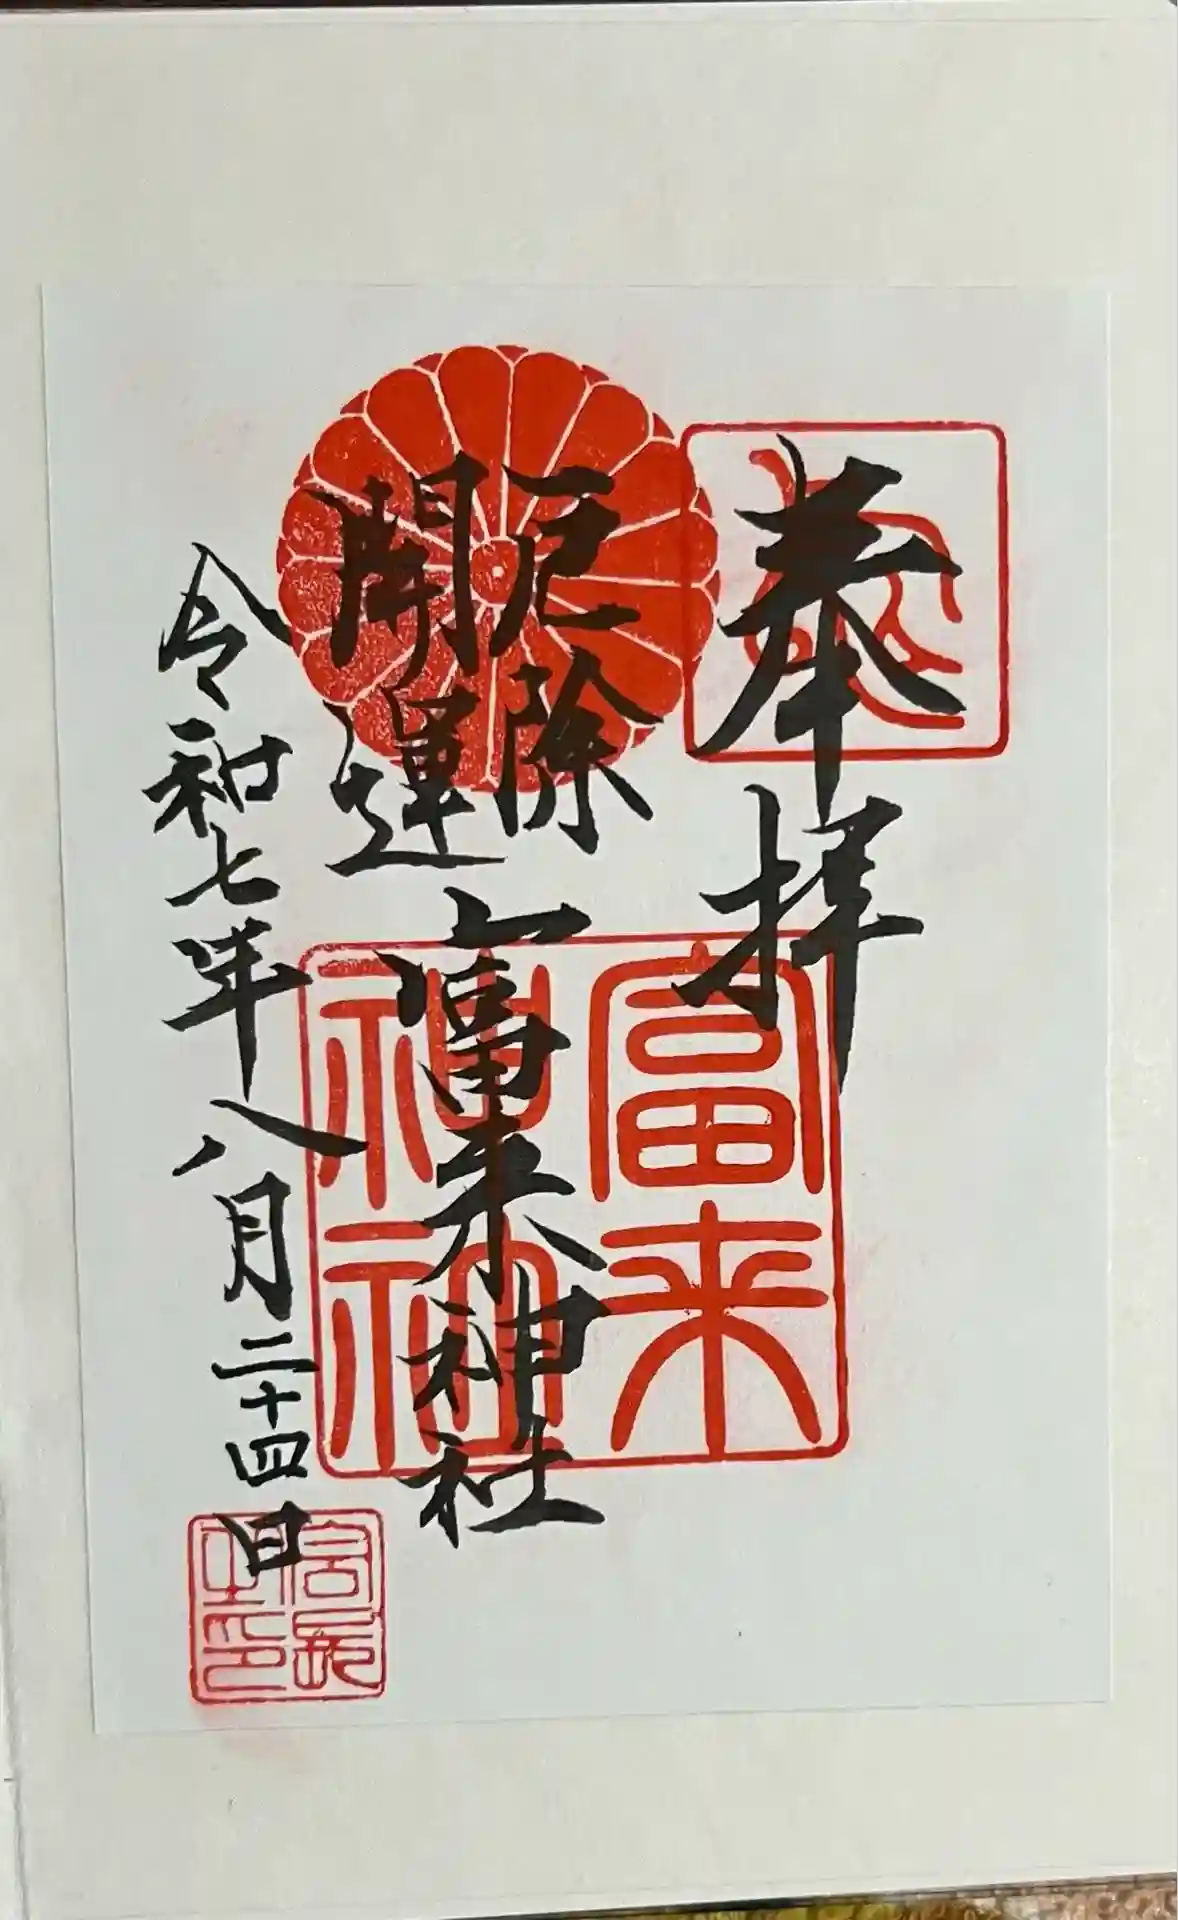 奉拝
厄除
開運
富来神社
令和七年八月二十四日
富来
神社
宮司
之印